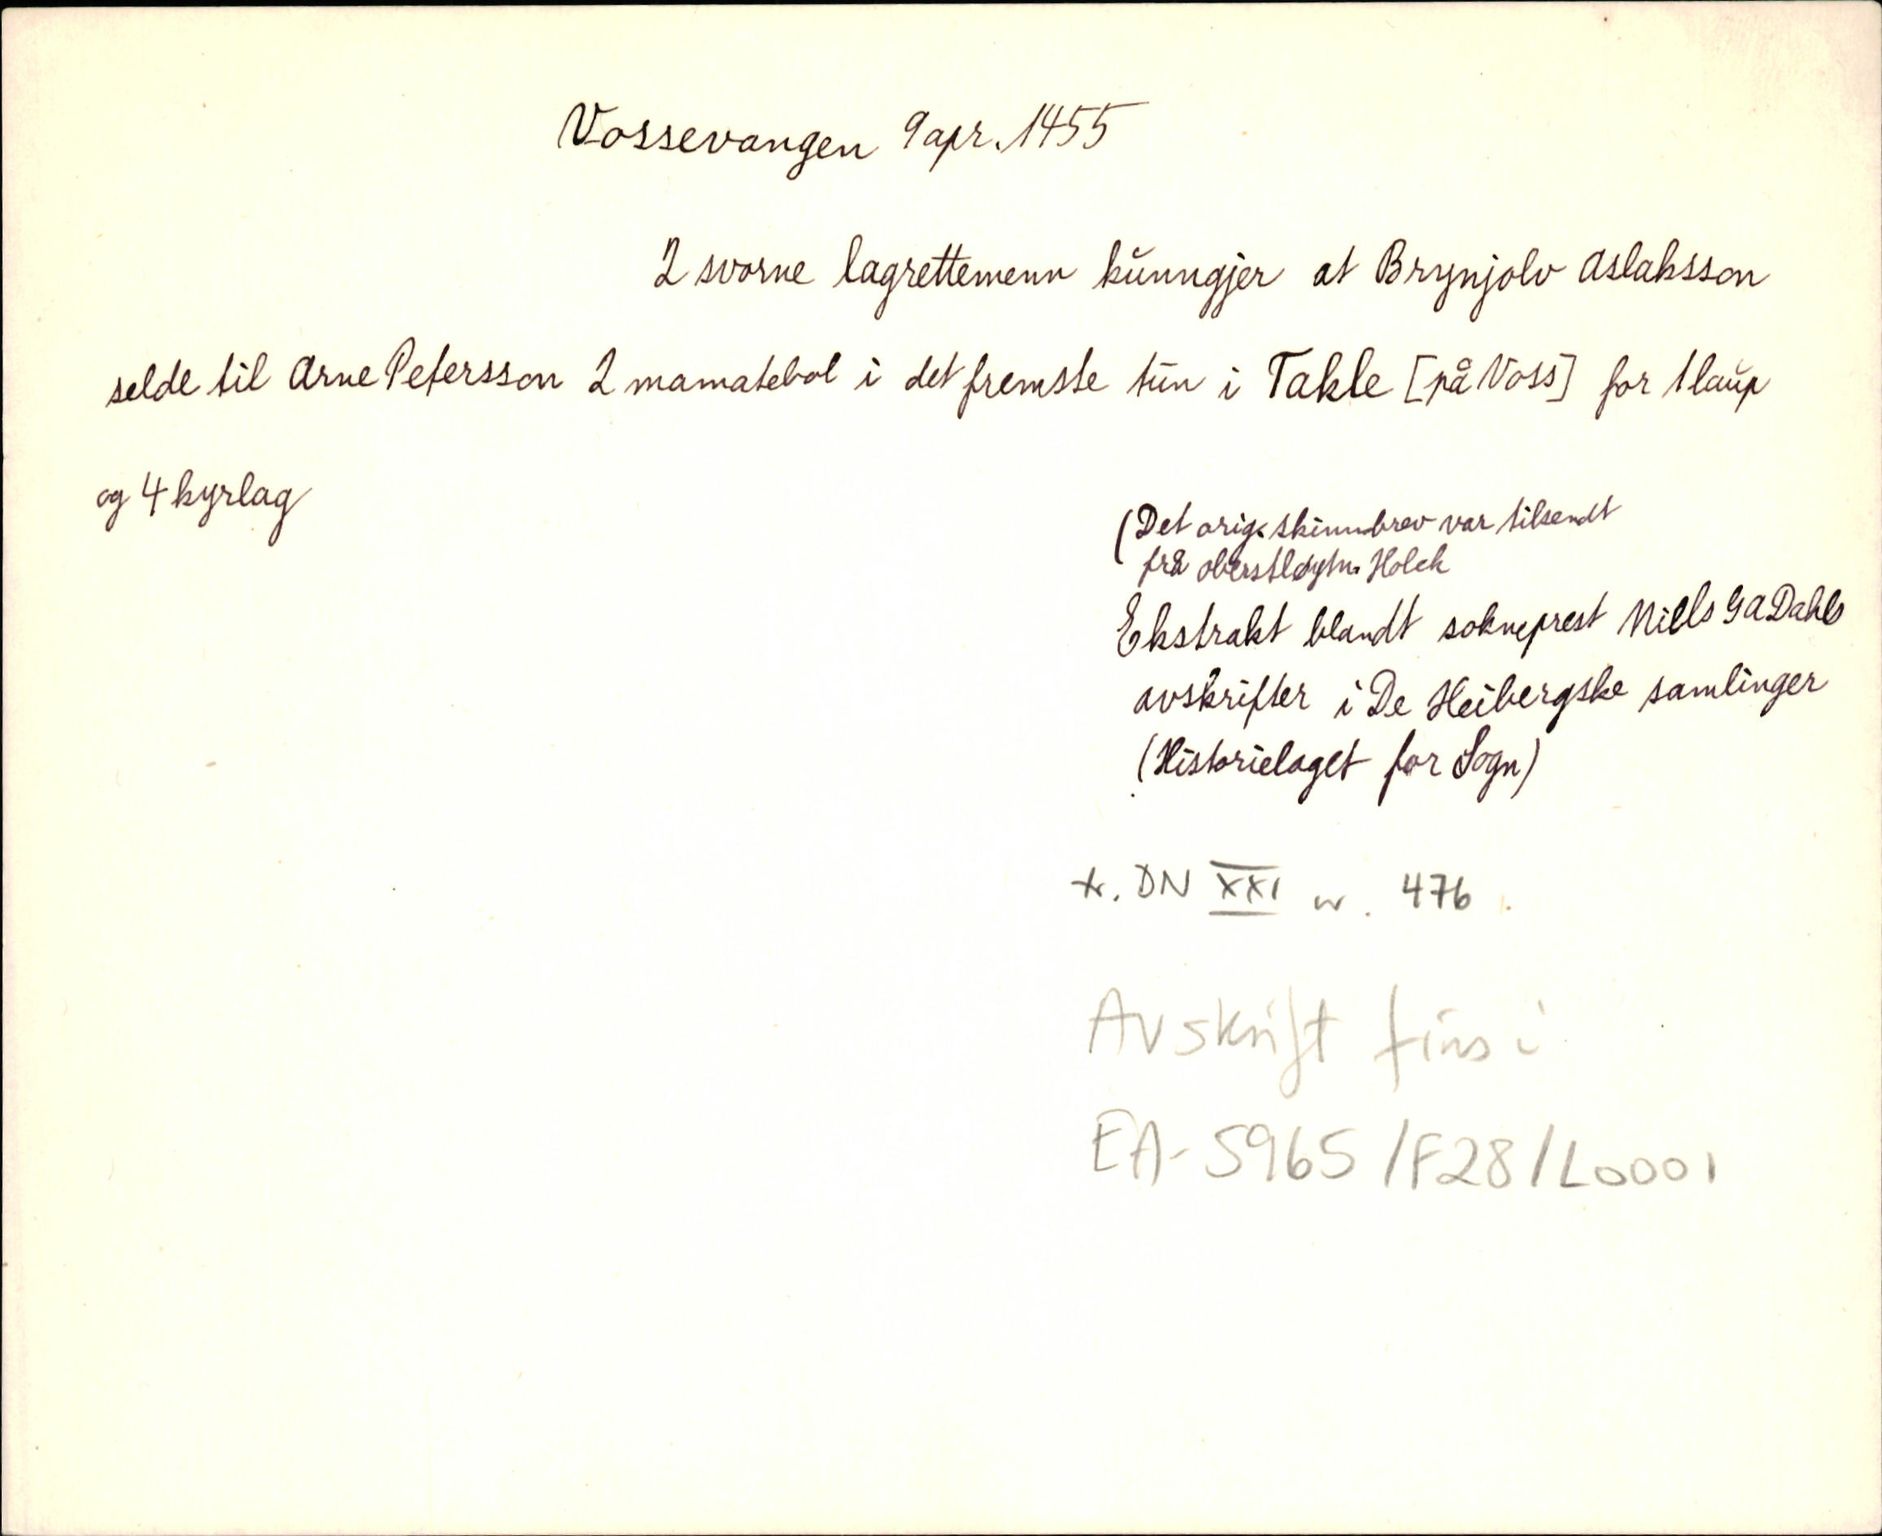 Vossevangen 9 apr. 1455
2 svorne lagrettemenn kŭnngjer at Brynjolv Aslaksson
selde til Arne Petersson 2 mamatebol i det fremste tŭn i Takle [på Voss] for 1 laŭp
og 4 kyrlag
(Det orig. skinnbrev var tilsendt
frå oberstløytn. Holck
Ekstrakt blandt sokneprest Niels G A Dahls
avskrifter i De Heibergske samlinger
(Historielaget for Sogn)
tr. DN XXI nr. 476.
Avskrift fins i
EA-5965/F28/L0001